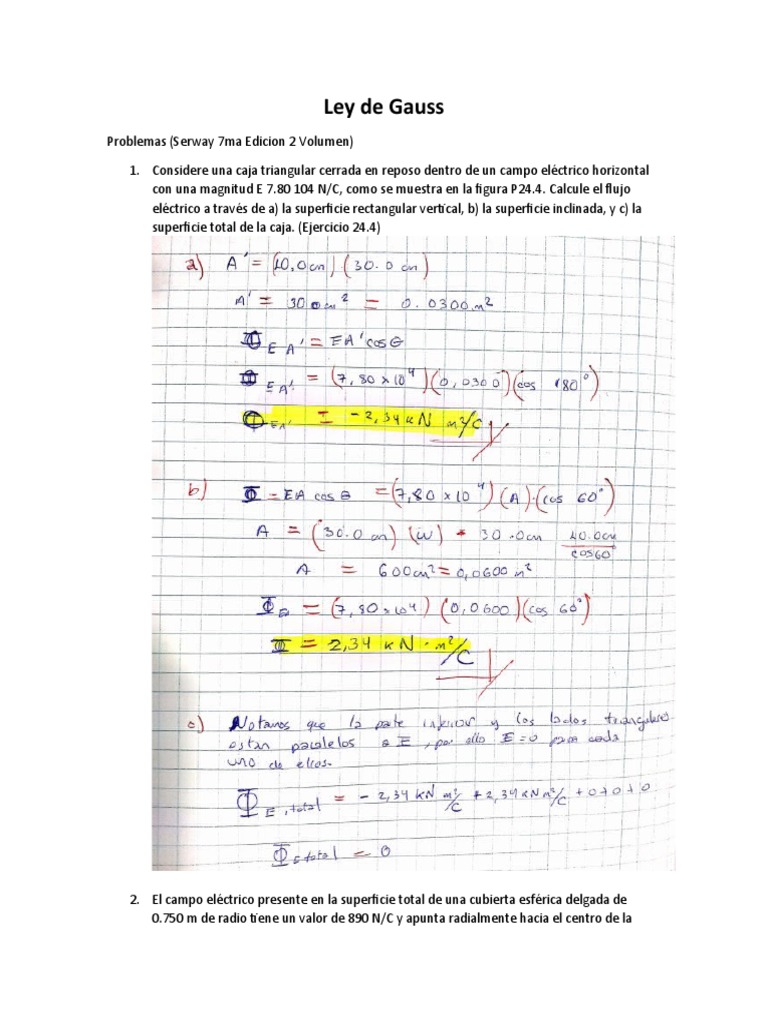 Ley de Gauss
Problemas (Serway 7ma Edicion 2 Volumen)
1. Considere una caja triangular cerrada en reposo dentro de un campo eléctrico horizontal
con una magnitud E 7.80 104 N/C, como se muestra en la figura P24.4. Calcule el flujo
eléctrico a través de a) la superficie rectangular vertical, b) la superficie inclinada, y c) la
superficie total de la caja. (Ejercicio 24.4)
a) A' = (10,0 cm) (30.0 cm)
A' = 300 cm² = 0.0300 m²
Φ E A' = EA' cos θ
Φ E A' = (7,80 x 10⁴) (0,0300) (cos 180°)
Φ EA' = -2,34 kN m²/C
b) Φ = EA cos θ = (7,80 x 10⁴) (A)·(cos 60°)
A = (30.0 cm) (w) = 30.0cm 10.0cm/cos60°
A = 600cm² = 0,0600 m²
Φ E = (7,80 x 10⁴) (0,0600) (cos 60°)
Φ = 2,34 kN · m²/C
c) Notamos que la parte inferior y los lados triangulares
estan paralelos a E, por ello E = 0 para cada
uno de ellos.
Φ E, total = - 2,34 kN m²/C + 2,34 kN m²/C + 0 + 0 + 0
Φ E total = 0
2. El campo eléctrico presente en la superficie total de una cubierta esférica delgada de
0.750 m de radio tiene un valor de 890 N/C y apunta radialmente hacia el centro de la